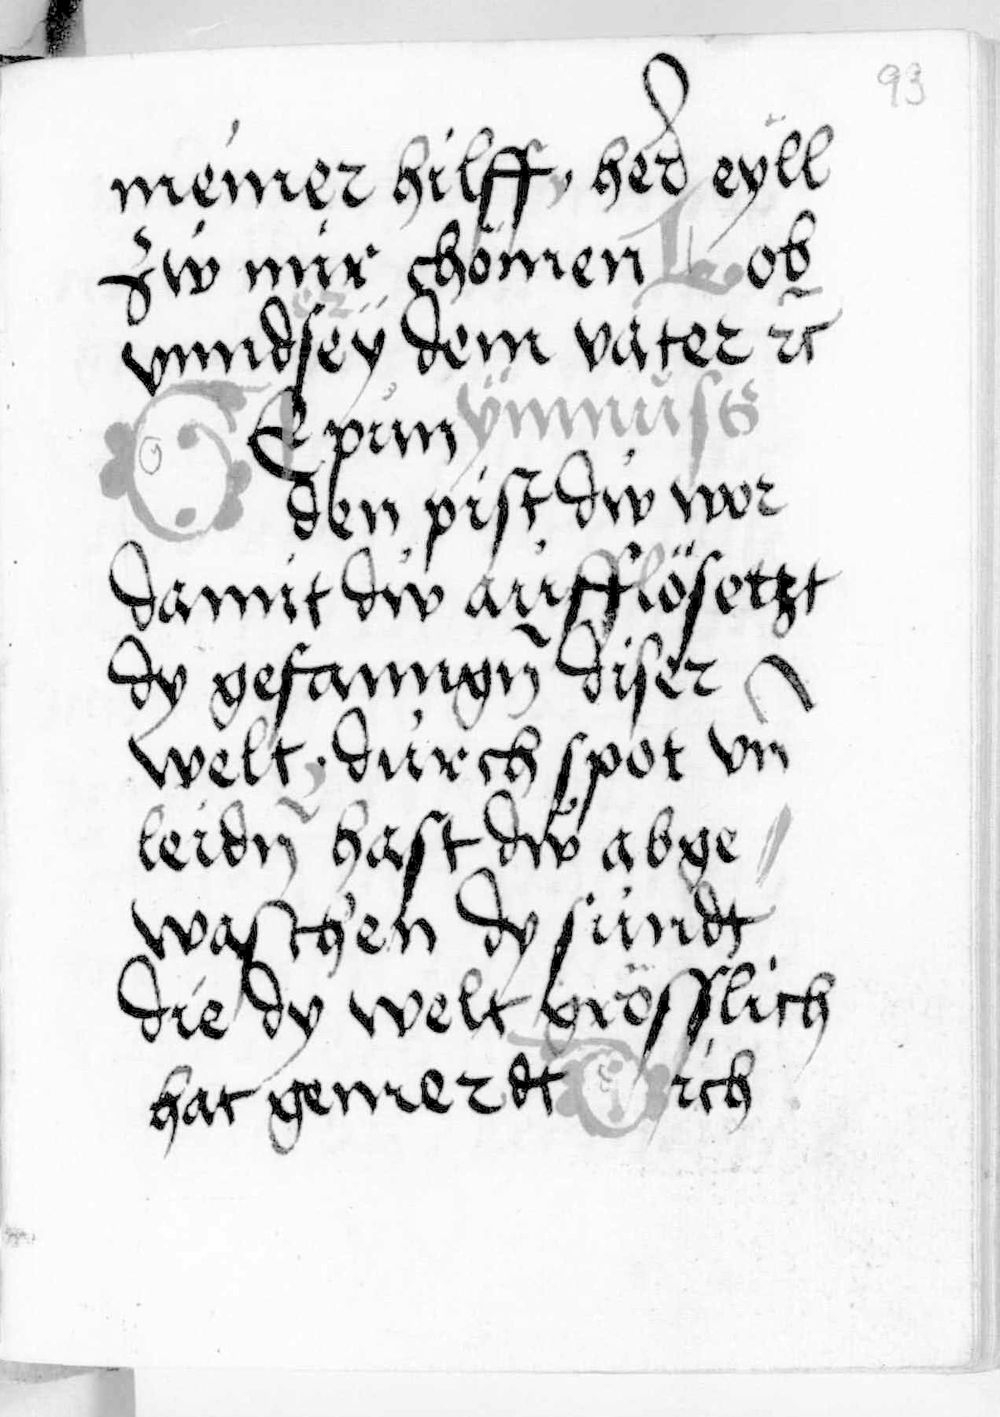 93
meiner hilff, herd eyll
zw mir chömen Lob
vnnd sey dem vater rc̄
Gepun ÿmnus
den pist dw wor
damit dw aufflösetzt
dy gefanngn̄ diser
welt, durch spot vn̄
leidn̄ hast dw abge
waschen dy sündt
die dy welt grösslich
hat gemerdt Dich